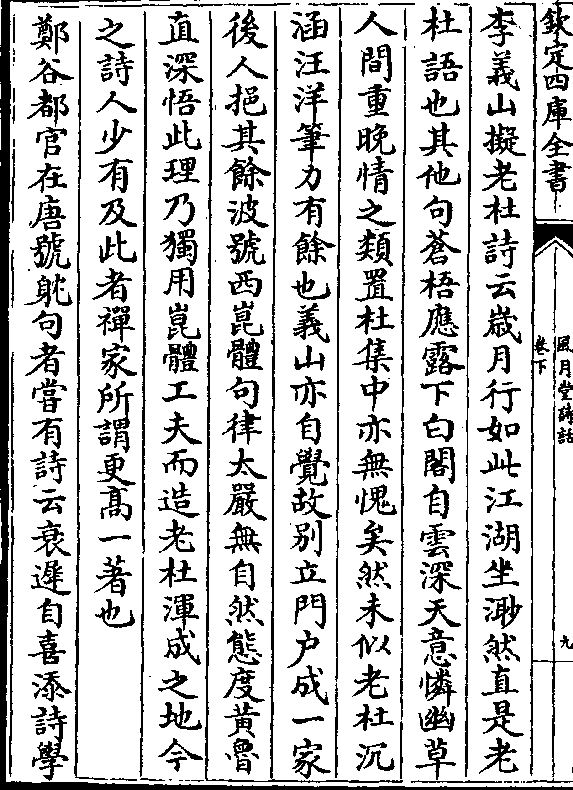 欽定四庫全書
風月堂詩話
卷下
九
李義山擬老杜詩云嵗月行如此江湖坐渺然直是老
杜語也其他句蒼梧應露下白閣自雲深天意憐幽草
人間重晚情之類置杜集中亦無愧矣然未似老杜沉
涵汪洋筆力有餘也義山亦自覺故别立門户成一家
後人挹其餘波號西崑體句律太嚴無自然態度黄魯
直深悟此理乃獨用崑體工夫而造老杜渾成之地今
之詩人少有及此者禪家所謂更髙一著也
鄭谷都官在唐號躭句者嘗有詩云衰遲自喜添詩學